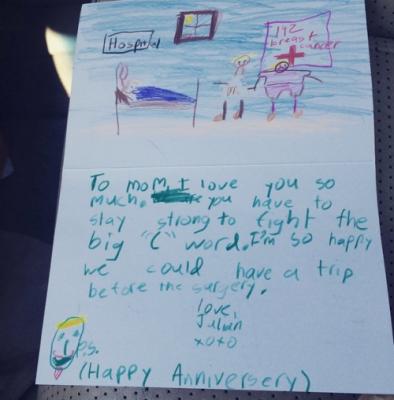 Hospital
192
breast
cancer
To mom, I love you so
much. you have to
stay strong to fight the
big "C" word. I'm so happy
we could have a trip
before the surgery.
love,
Julian
xoxo
P.s.
(Happy Anniversery)